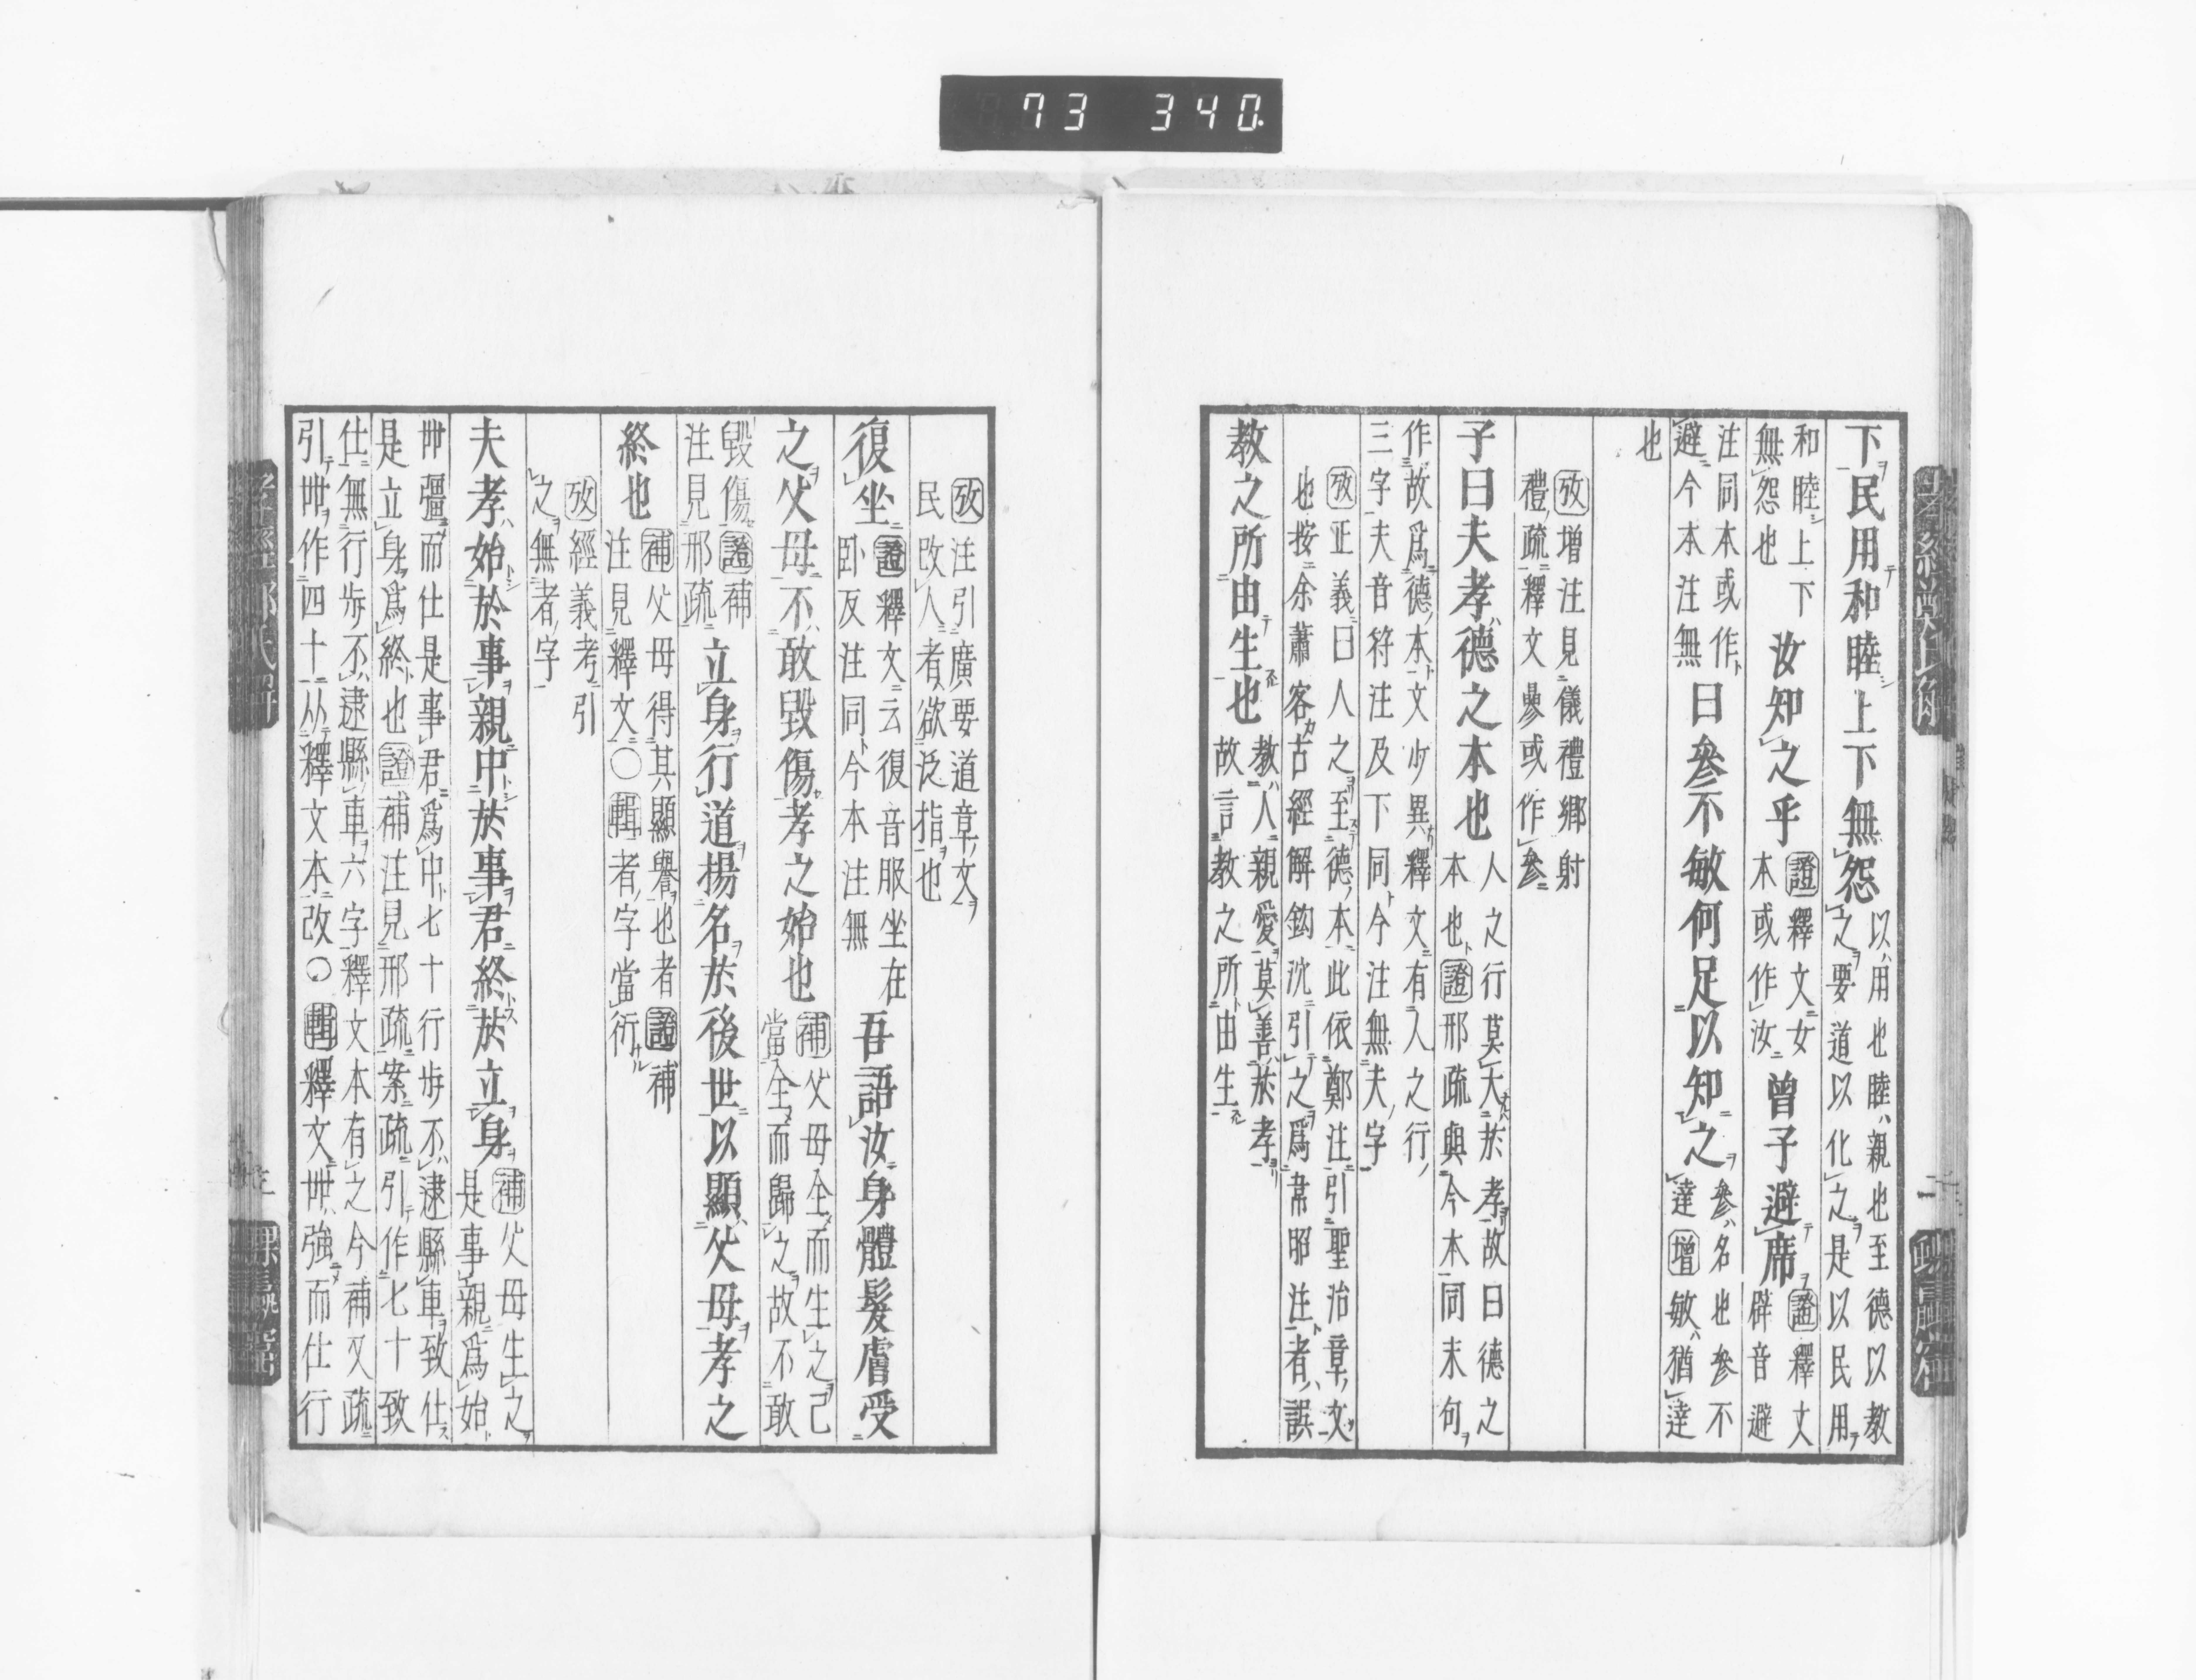 73 340
下民用和睦上下無怨以用也睦親也至德以教之要道以化之是以民用
和睦上下無怨也汝知之乎證釋文女本或作汝曾子避席證釋文辟音避
注同本或作避今本注無曰參不敏何足以知之參名也參不達增敏猶達
也
攷增注見儀禮鄉射禮疏釋文曑或作參
子曰夫孝德之本也人之行莫大於孝故曰德之本也證邢疏與今本同末句
作故爲德本文少異釋文有人之行三字夫音符注及下同今注無夫字
攷正義曰人之至德本此依鄭注引聖治章文也按余蕭客古經解鈎沈引之爲韋昭注者誤
教之所由生也教人親愛莫善於孝故言教之所由生
攷注引廣要道章文民改人者欲泛指也
復坐證釋文云復音服坐在卧反注同今本注無吾語汝身體髮膚受
之父母不敢毀傷孝之始也補父母全而生之己當全而歸之故不敢
毀傷證補注見邢疏立身行道揚名於後世以顯父母孝之
終也補父母得其顯譽也者證補注見釋文〇輯者字當衍
攷經義考引之無者字
夫孝始於事親中於事君終於立身補父母生之是事親爲始
卌彊而仕是事君爲中七十行步不逮縣車致仕是立身爲終也證補注見邢疏案疏引作七十致
仕無行步不逮縣車六字釋文本有之今補又疏引卌作四十从釋文本改〇輯釋文卌強而仕行